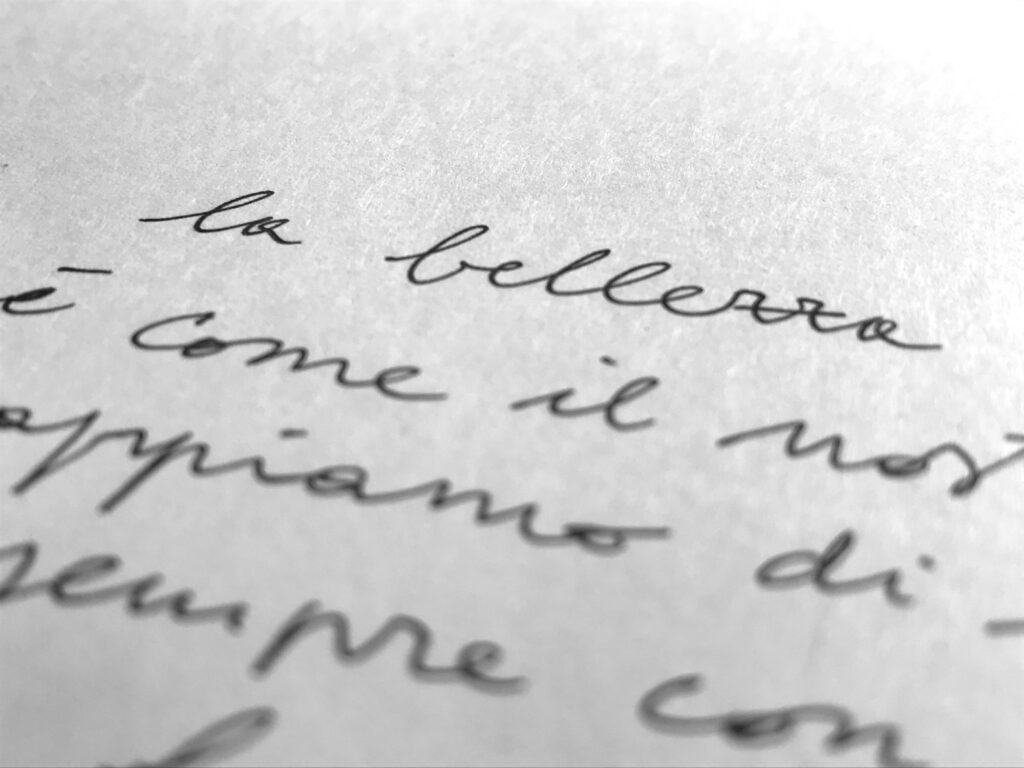 la bellezza
è come il nos
appiamo di
sempre con